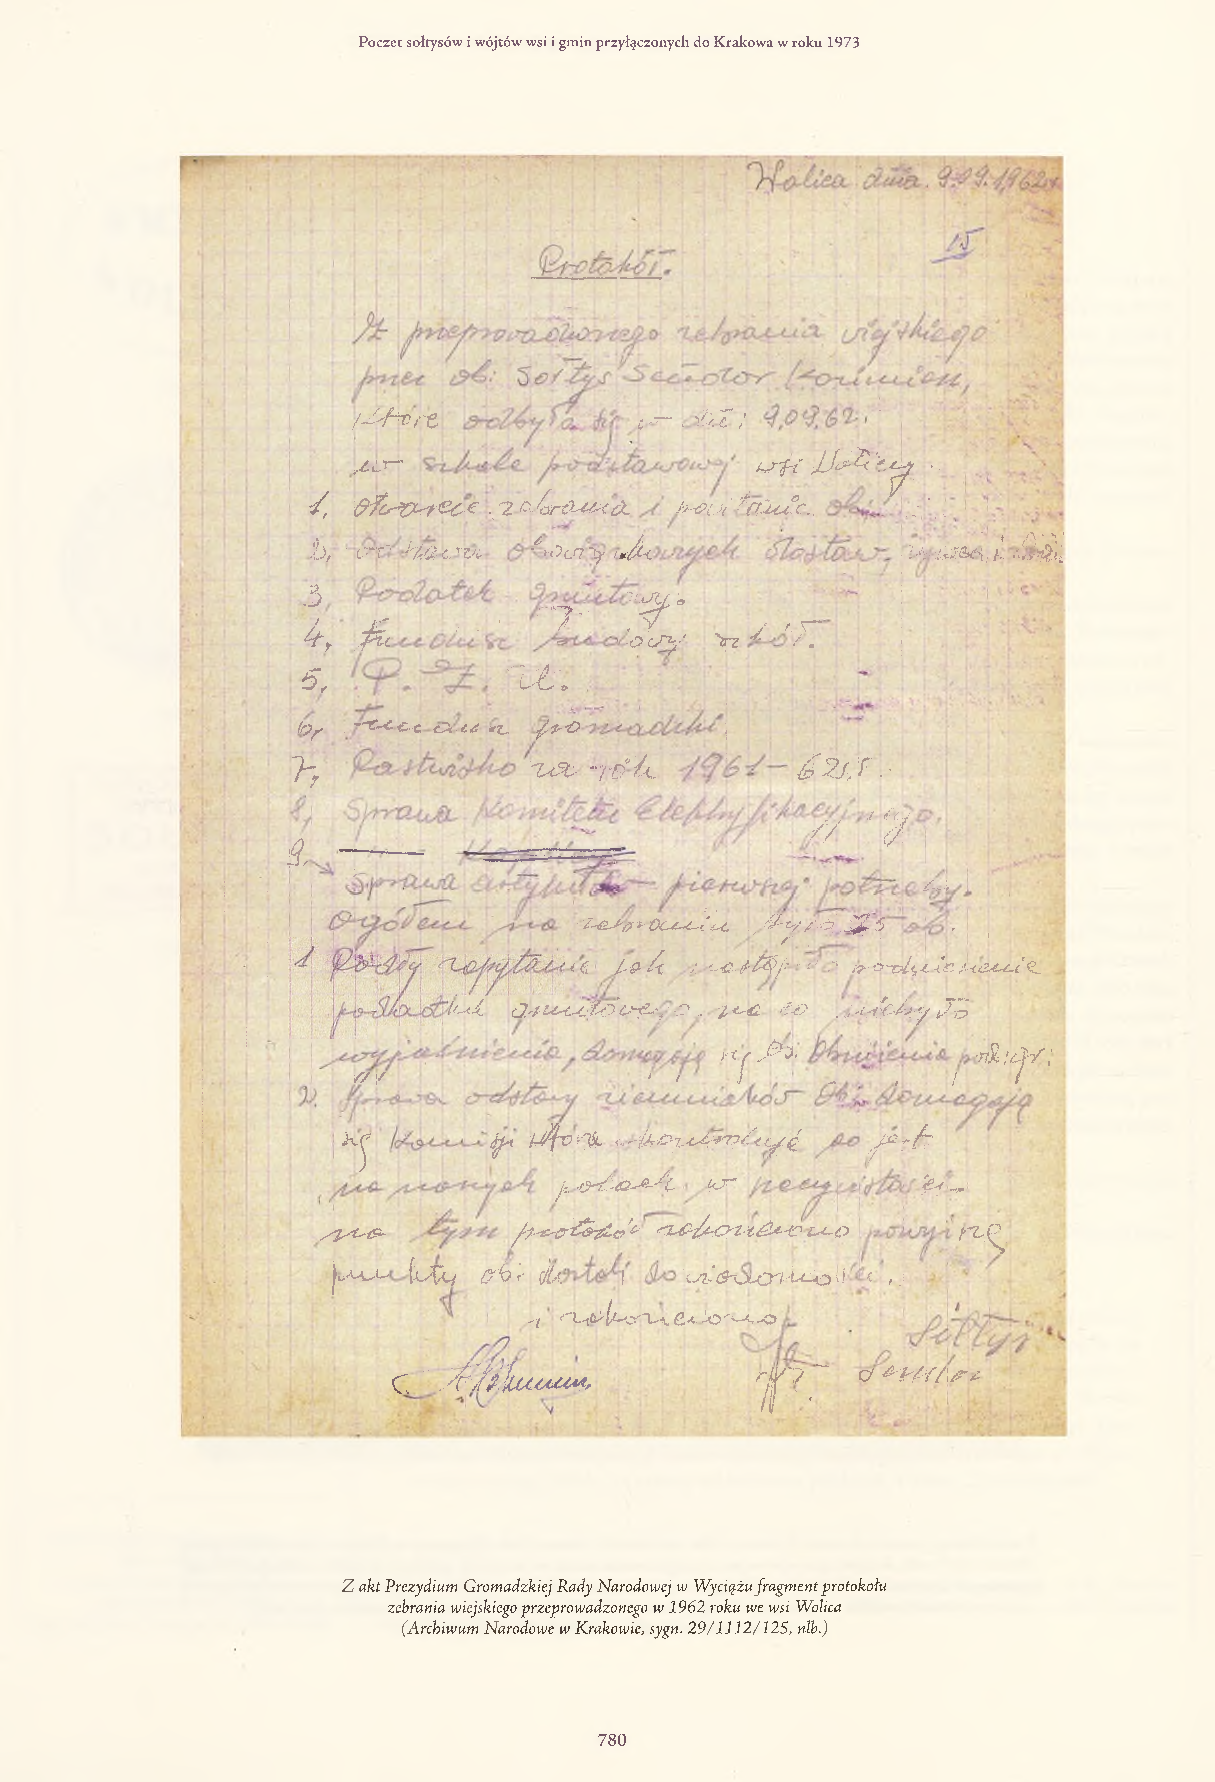 Poczet sołtysów i wójtów wsi i gmin przyłączonych do Krakowa w roku 1973
Wolica dnia. 9.09.1962r
15
Protokół.
Z przeprowadzonego zebrania wiejskiego
przez ob: Sołtys Sendor Kazimierz,
które odbyła się w dn: 9.09.62.
w szkole podstawowej wsi Wolicy
1, Otwarcie zebrania i powitanie ob.
2, Odstawa obowiązkowych dostaw, żywca i
3, Podatek gruntowy.
4, Fundusz budowy szkół.
5, P. Z. U.
6, Fundusz gromadzki
7, Pastwisko za rok 1961-62r.
8, Sprawa Komitetu Elektryfikacyjnego.
9,
Sprawa artykułów pierwszej potrzeby.
Ogółem na zebraniu było 25 ob.
1 Padły zapytanie jak nastąpiło podniesienie
podatku gruntowego, na co niebyło
wyjaśnienia, domagają się Ob. Obniżenia pod. gr.
2. Sprawa odstawy ziemniaków Ob. domagają
się Komisji która skontroluje co jest
na naszych polach w rzeczywistości
na tym protokół zakończono powyższe
punkty ob: dostali do wiadomości.
i zakończono
Sołtys
Sendor
Z akt Prezydium Gromadzkiej Rady Narodowej w Wyciążu fragment protokołu
zebrania wiejskiego przeprowadzonego w 1962 roku we wsi Wolica
(Archiwum Narodowe w Krakowie, sygn. 29/1112/125, nlb.)
780